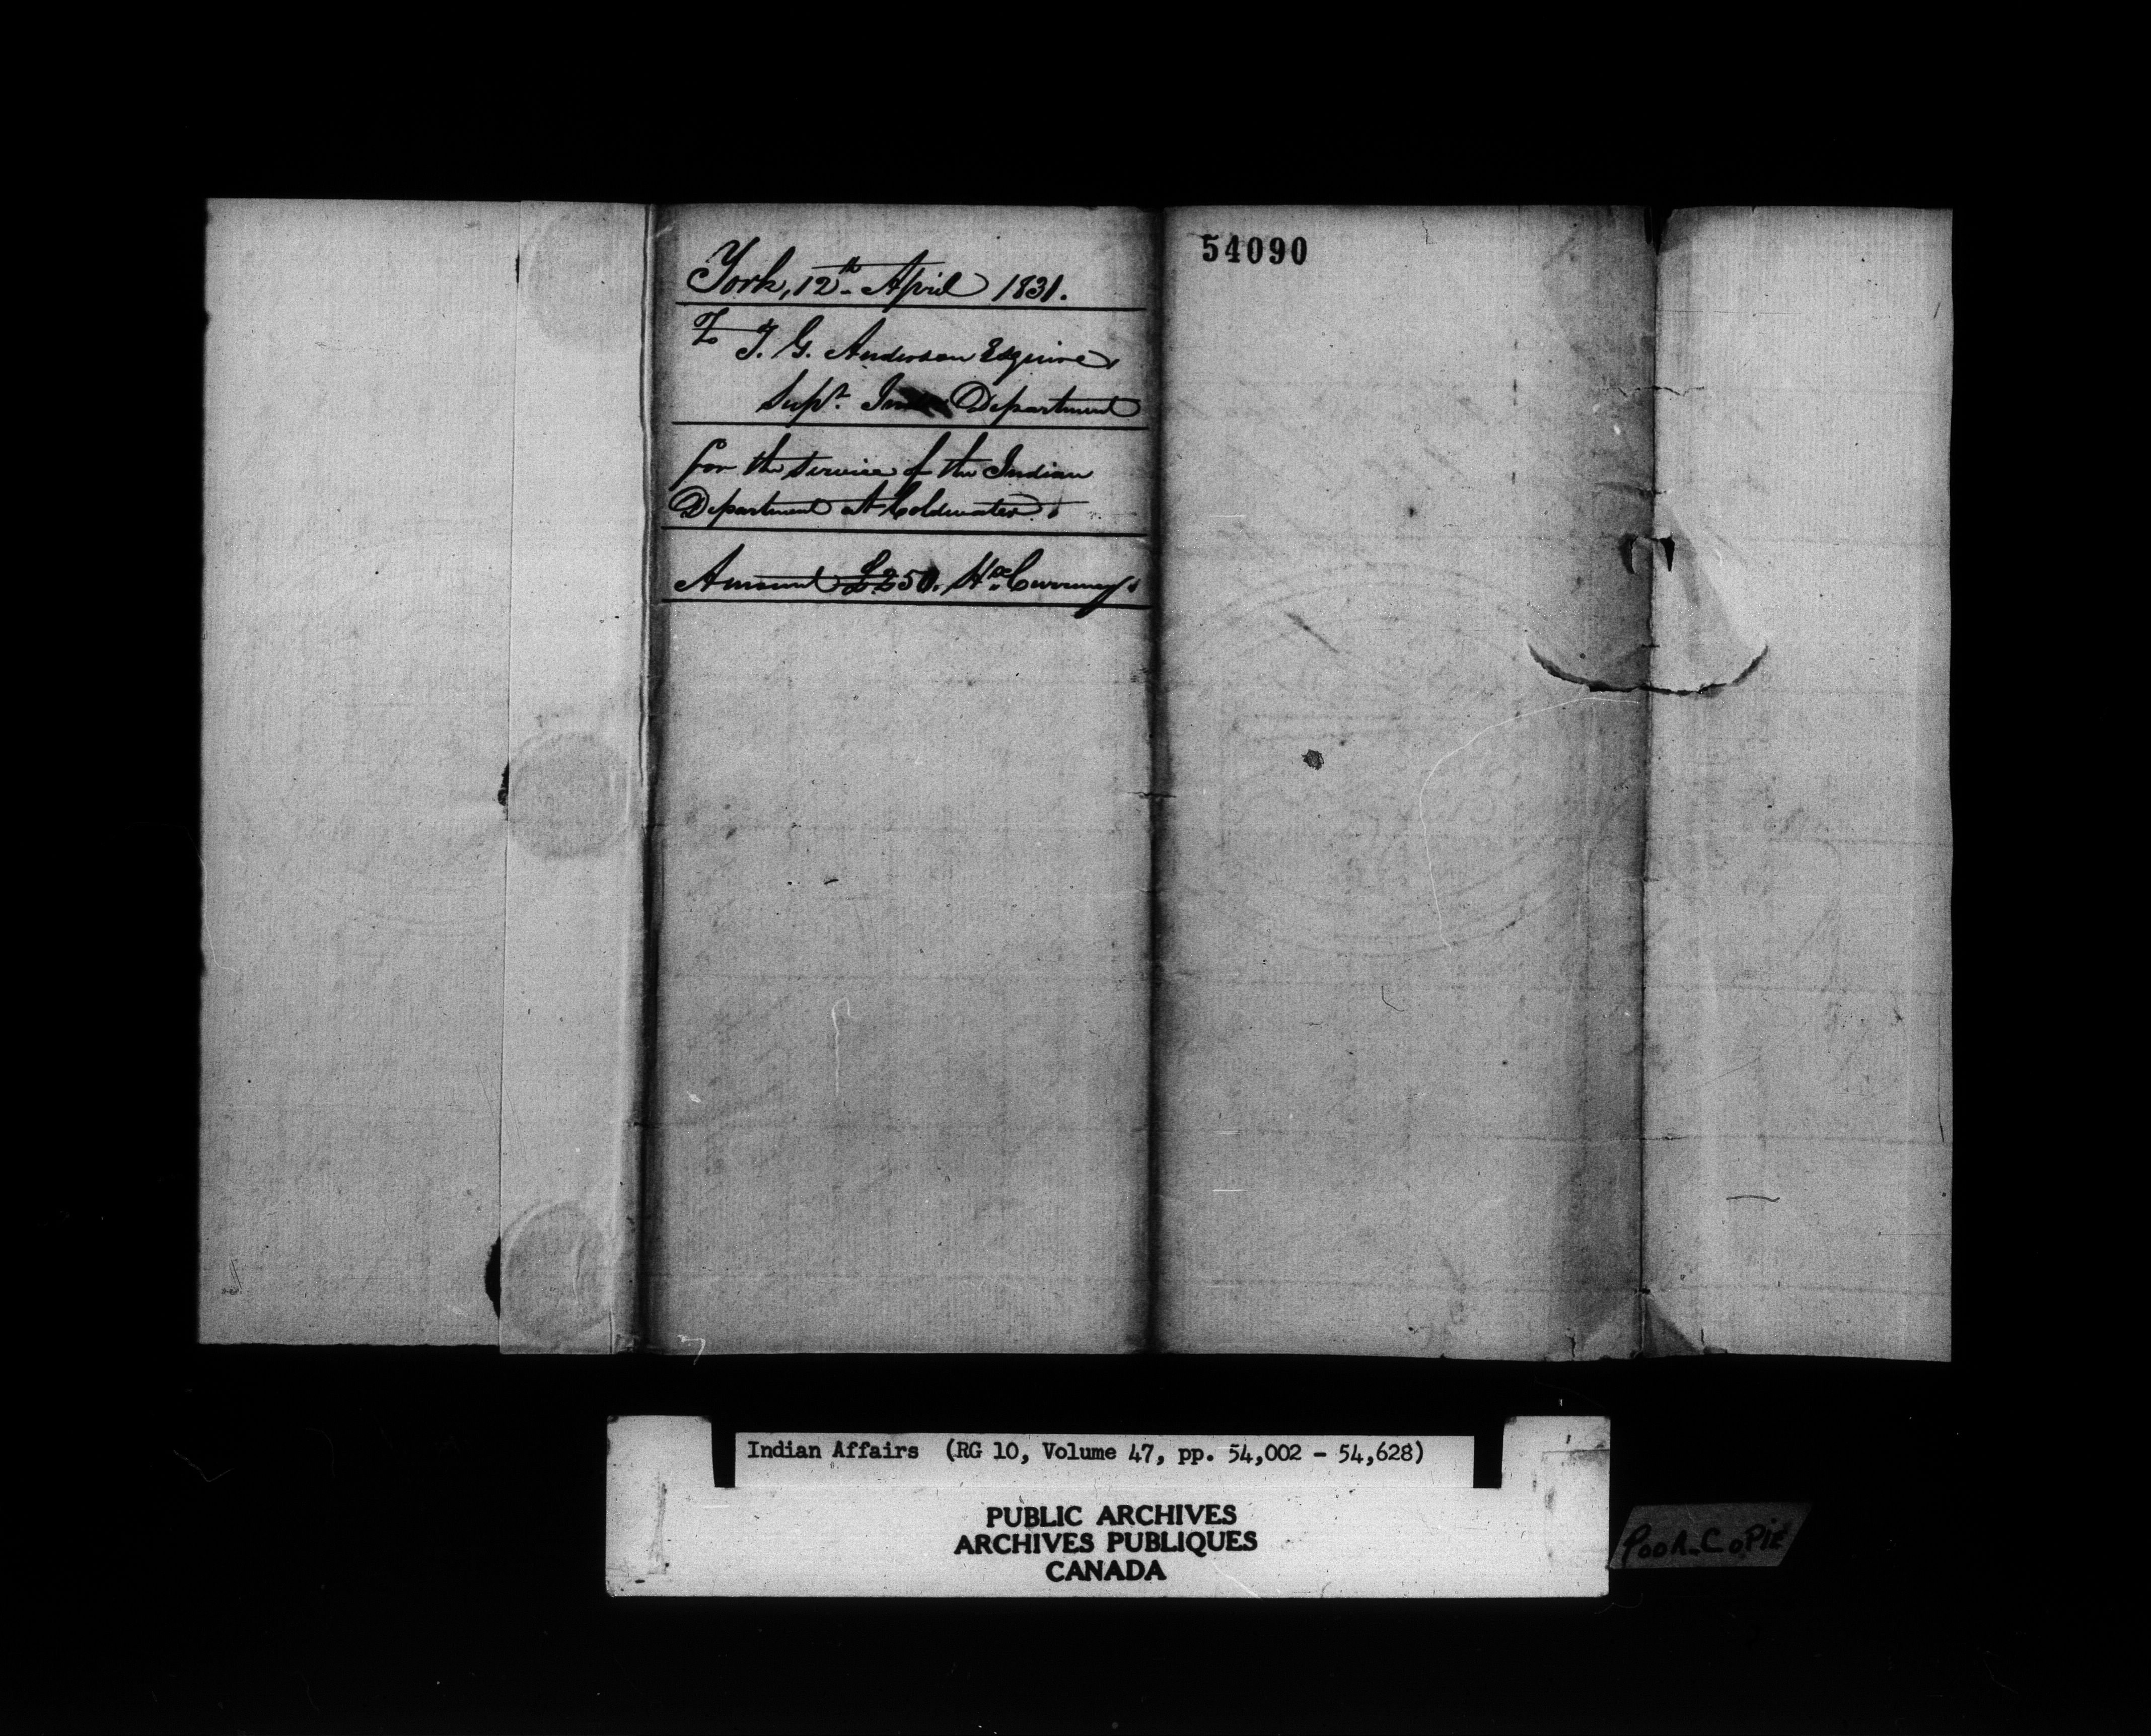 York, 12th April 1831.
To T. G. Anderson Esquire,
Supt. Department
for the Service of the Indian
Department at Coldwater.
Amount £250. Hx. Currency.
54090
Indian Affairs (RG 10, Volume 47, pp. 54,002 - 54,628)
PUBLIC ARCHIVES
ARCHIVES PUBLIQUES
CANADA
Pooh-CoPie